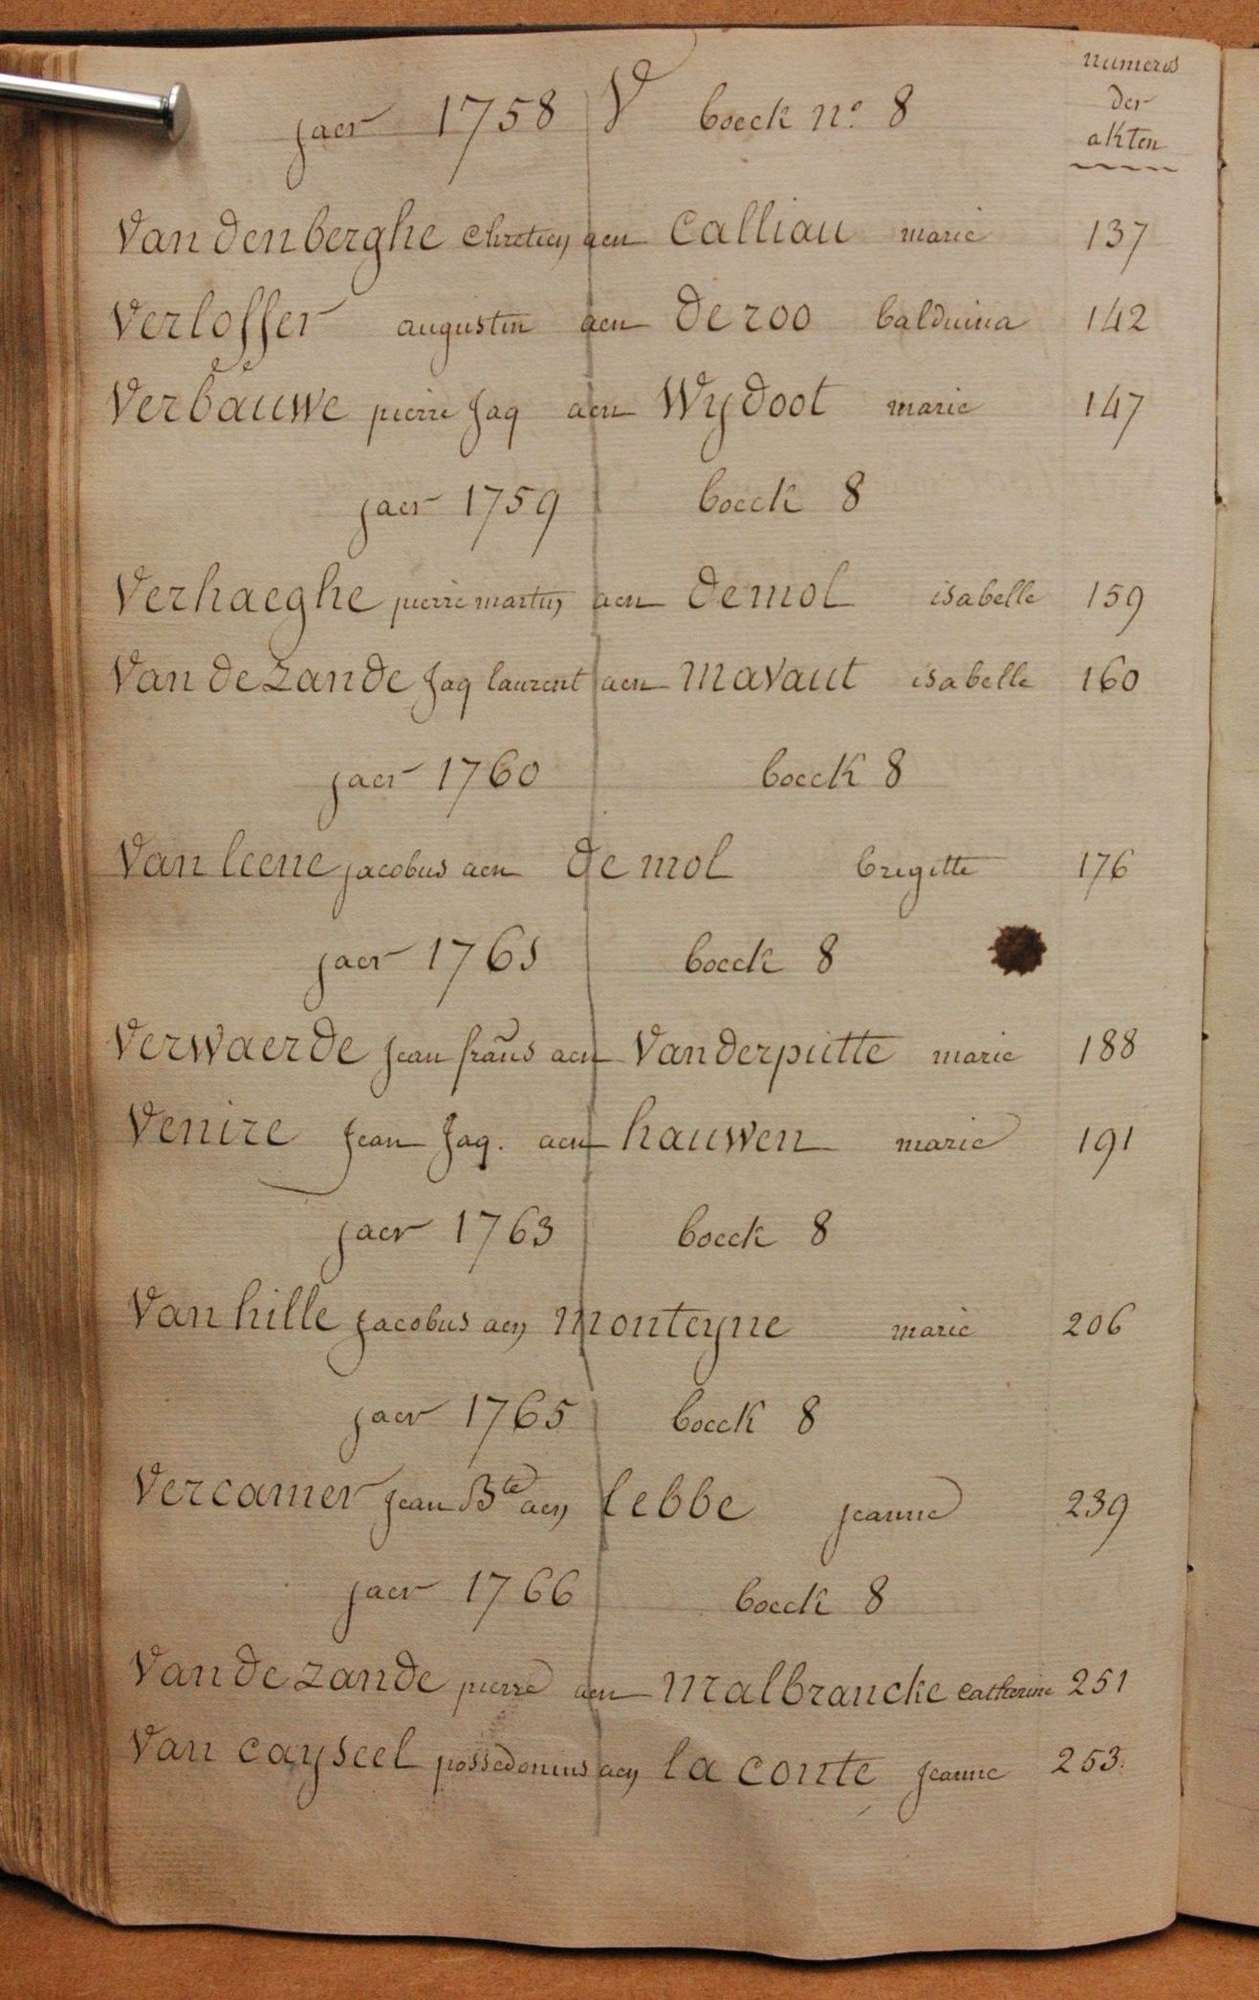 numeros
der
akten
jaer 1758 V boeck nº 8
Vandenberghe Chretien aen Calliau marie 137
Verlosser augustin aen de roo balduina 142
Verbauwe pierre Jaq aen Wydoot marie 147
jaer 1759 boeck 8
Verhaeghe pierre martin aen demol isabelle 159
Van de Zande Jaq laurent aen Mavaut isabelle 160
jaer 1760 boeck 8
Van leene jacobus aen de mol brigitte 176
jaer 1761 boeck 8
Verwaerde jean frans aen Vanderputte marie 188
Venire Jean Jaq. aen hauwen marie 191
jaer 1763 boeck 8
Van hille Jacobus aen Monteyne marie 206
jaer 1765 boeck 8
Vercamer Jean Bte aen lebbe jeanne 239
jaer 1766 boeck 8
Van de zande pierre aen Malbrancke catherine 251
Van cayseel possedonius aen la conte Jeanne 253.